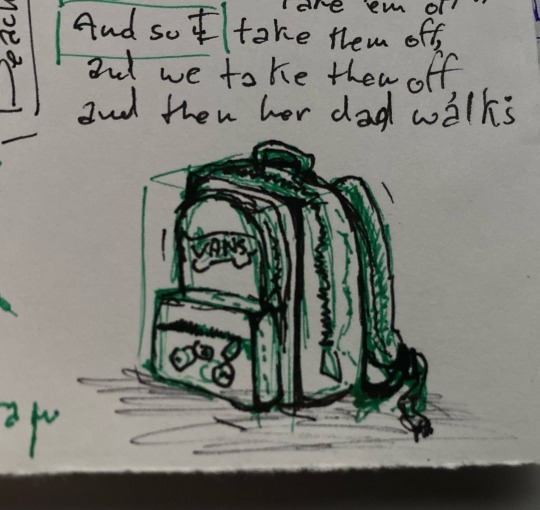 Take 'em off"
And so I take them off,
and we take them off,
and then her dad walks
VANS